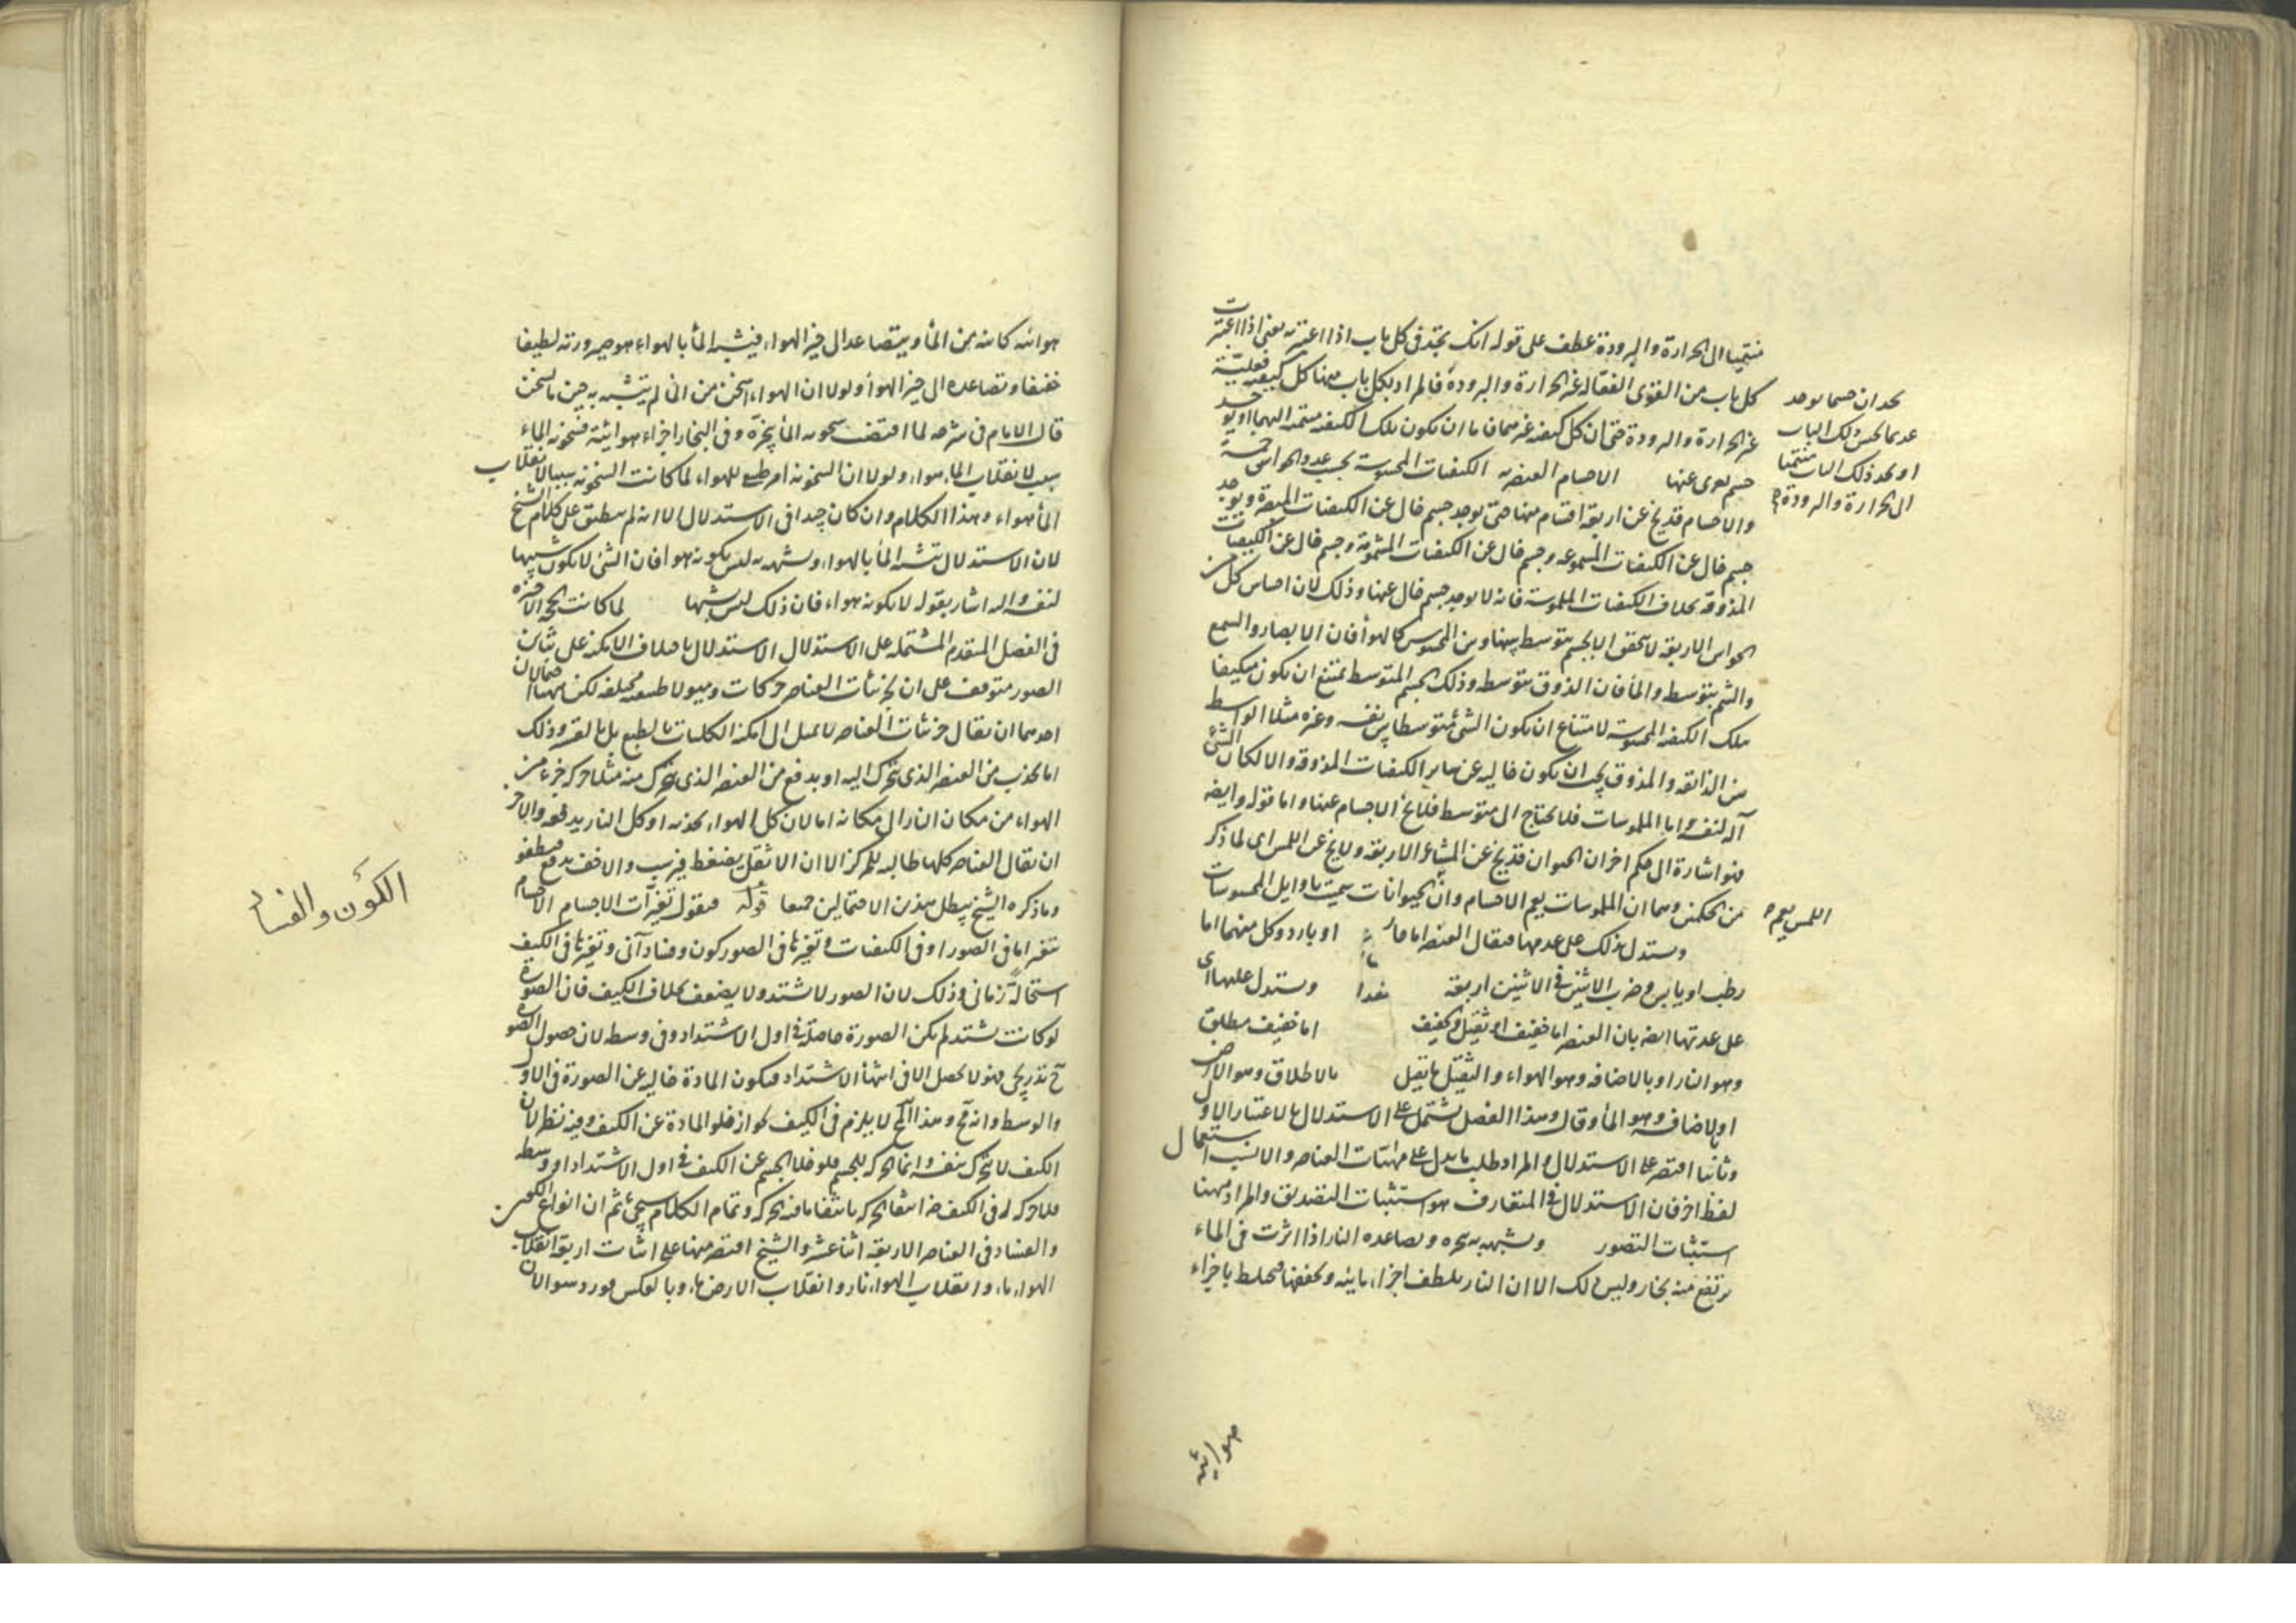 منتميا الى الحرارة والبرودة عطف على قوله انك تجد فى كل باب اذا اعتبرته يعنى اذا اعتبرت
كل باب من القوى الفعالة غير الحرارة والبرودة فالمراد بكل باب ههنا كل كيفية فعلية
غير الحرارة والبرودة حتى ان كل كيفية غيرهما فاما ان يكون تلك الكيفية منتمية اليهما او يوجد
جسم يعرى عنها الاجسام العنصرية الكيفيات المحسوسة بحسب عدد الحواس خمسة
والاجسام قد يخ عن اربعة اقسام منها حتى يوجد جسم خال عن الكيفيات المبصرة ويوجد
جسم خال عن الكيفيات المسموعة وجسم خال عن الكيفيات المشمومة وجسم خال عن الكيفيات
المذوقة بخلاف الكيفيات الملموسة فانه لا يوجد جسم خال عنها وذلك لان احساس كل من
الحواس الاربعة لا يتحقق الا بجسم متوسط بينها وبين المحسوس كالهواء فان الابصار والسمع
والشم بتوسطه والماء فان الذوق بتوسطه وذلك الجسم المتوسط يمتنع ان يكون متكيفا
بتلك الكيفية المحسوسة لامتناع ان يكون الشئ متوسطا بين نفسه وغيره مثلا الواسط
بين الذائقة والمذوق يجب ان يكون خالية عن سائر الكيفيات المذوقة والا لكان الشئ
آلة لنفسه واما الملموسات فلا يحتاج الى متوسط فلا يخ الاجسام عنها واما قوله وايضا
فهو اشارة الى حكم اخر ان الحيوان قد يخ عن المشاعر الاربعة ولا يخ عن اللمس اى لما ذكر
من الحكمين وهما ان الملموسات يعم الاجسام وان الحيوانات سميت باوايل المحسوسات
ويستدل بذلك على عددها فيقال العنصر اما حار او بارد وكل منهما اما
رطب او يابس وضرب الاثنين فى الاثنين اربعة ويستدل عليها اى
على عدتها ايضا بان العنصر اما خفيف او ثقيل والخفيف اما خفيف مطلق
وهو النار او بالاضافة وهو الهواء والثقيل ثقيل بالاطلاق وهو الارض
او بالاضافة وهو الماء وقال وهذا الفصل يشتمل على الاستدلال بالاعتبار الاول
وثانيا اقتصر على الاستدلال والمراد طلب ما يدل على مهيات العناصر والانسب استعمال
لفظ اخر فان الاستدلال فى المتعارف هو استثبات التصديق والمراد ههنا
استثبات التصور ويشبهه به بخره وتصاعده النار اذا اثرت فى الماء
يرتفع منه بخار وليس ذلك الا ان النار يلطف اجزاء مائية ويخففها فيختلط باجزاء
هوائية
نجد ان جسما يوجد
عديما لجنس ذلك الباب
او نجد ذلك الباب منتميا
الى الحرارة والبرودة
اللمس يعم
هوائية كائنة من الماء ويتصاعد الى حيز الهواء فيشبه الماء بالهواء هو صيرورته لطيفا
خفيفا وتصاعده الى حيز الهواء ولولا ان الهواء اسخن من الماء لم يتشبه به حين ما يسخن
قال الامام فى شرحه لما اقتضت سخونة الماء بخره وفى البخار اجزاء هوائية فسخونة الماء
سبب لانقلاب الماء هواء ولولا ان السخونة امر طبيعى للهواء لما كانت السخونة سببا لانقلاب
الماء هواء وهذا الكلام وان كان جيدا فى الاستدلال الا انه لم ينطبق على كلام الشيخ
لان الاستدلال بتشبه الماء بالهواء وشبهه به ليس بكونه هواء فان الشئ لا يكون شبيها
لنفسه واليه اشار بقوله لا بكونه هواء فان ذلك ليس بشبها لما كانت الحجة الاخيرة
فى الفصل المتقدم المشتملة على الاستدلال الاستدلال باختلاف الامكنة على تباين
الصور متوقفة على ان لجزئيات العناصر حركات وميولا طبيعية مختلفة لكن ههنا احتمالان
احدهما ان يقال جزئيات العناصر لا يميل الى امكنة الكليات بالطبع بل بالقسر وذلك
اما بجذب من العنصر الذى يتحرك اليه او بدفع من العنصر الذى يتحرك منه مثلا حركة جزء من
الهواء من مكان النار الى مكانه اما لان كل الهواء يجذبه او كل النار يدفعه والاخر
ان يقال العناصر كلها طالبة للمركز الا ان الاثقل يضغط فيرسب والاخف يدفع فيطفو
وما ذكره الشيخ يبطل هذين الاحتمالين جميعا قوله فيقول تغيرات الاجسام الاجسام
يتغير اما فى الصور او فى الكيفيات وتغيرها فى الصور كون وفساد آنى وتغيرها فى الكيف
استحالة زمانى وذلك لان الصور لا يشتد ولا يضعف بخلاف الكيف فان الصورة
لو كانت تشتد لم يكن الصورة حاصلة فى اول الاشتداد وفى وسطه لان حصول الصورة
ح تدريجى فهو لا يحصل الا فى انتهاء الاشتداد فيكون المادة خالية عن الصورة فى الاول
والوسط وانه مح وهذا المح لا يلزم فى الكيف لجواز خلو المادة عن الكيف وفيه نظر لان
الكيف لا يتحرك بنفسه وانما الحركة للجسم فلو خلا الجسم عن الكيف فى اول الاشتداد او وسطه
فلا حركة له فى الكيف ضرورة انتفاء الحركة بانتفاء ما فيه الحركة وتمام الكلام سيجئ ثم ان انواع الكون
والفساد فى العناصر الاربعة اثنا عشر والشيخ اقتصر ههنا على اثبات اربعة انقلاب
الهواء ماء وانقلاب الهواء نار وانقلاب الارض ماء وبالعكس
الكون والفساد